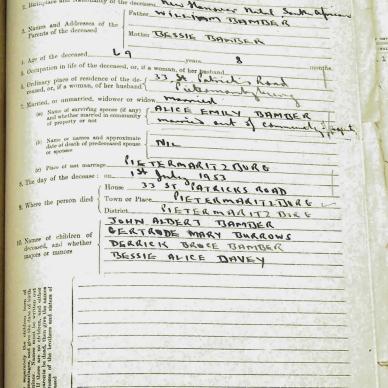 2. Birthplace and Nationality of the deceased New Hanover Natal South African
3. Names and Addresses of the Parents of the deceased
Father WILLIAM BAMBER
Mother BESSIE BAMBER
4. Age of the deceased 69 years 8 months
5. Occupation in life of the deceased, or, if a woman, of her husband
6. Ordinary place of residence of the deceased, or, if a woman, of her husband
33 St Patricks Road
Pietermaritzburg
7. Married, or unmarried, widower or widow married
(a) Name of surviving spouse (if any) and whether married in community of property or not
ALICE EMILY BAMBER
married out of community
(b) Name or names and approximate date of death of predeceased spouse or spouses
NIL
(c) Place of last marriage PIETERMARITZBURG
8. The day of the decease: on 1st July 1953
9. Where the person died
House 33 ST PATRICKS ROAD
Town or Place PIETERMARITZBURG
District PIETERMARITZBURG
10. Names of children of deceased, and whether majors or minors
JOHN ALBERT BAMBER
GERTRUDE MARY BURROWS
DERRICK BRUCE BAMBER
BESSIE ALICE DAVEY